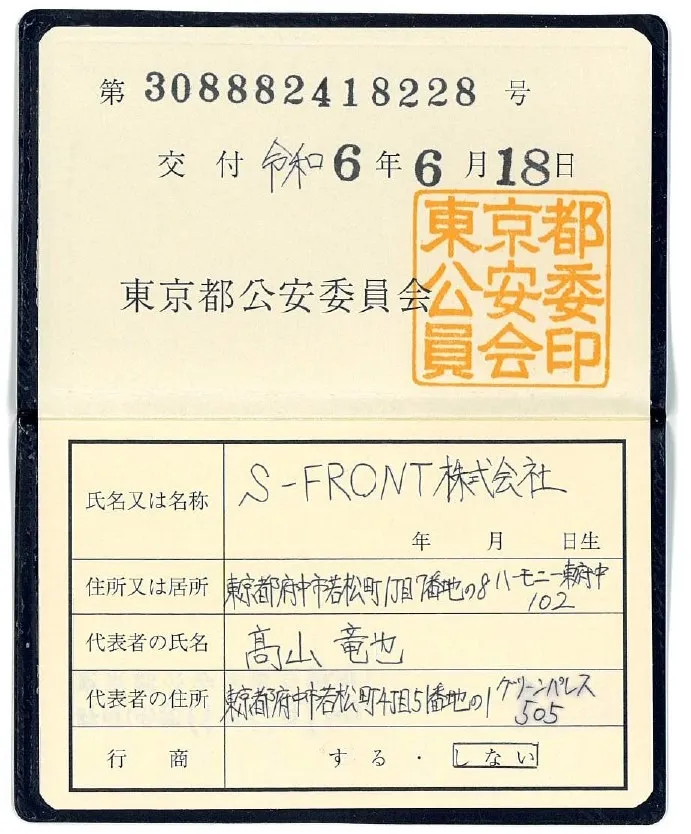 第 308882418228 号
交付 令和 6 年 6 月 18 日
東京都公安委員会
東京都
公安委
員会印
氏名又は名称 S-FRONT株式会社
年 月 日生
住所又は居所 東京都府中市若松町1丁目7番地の8 ハーモニー東府中
102
代表者の氏名 髙山 竜也
代表者の住所 東京都府中市若松町4丁目5番地の1 グリーンパレス
505
行商 する・しない